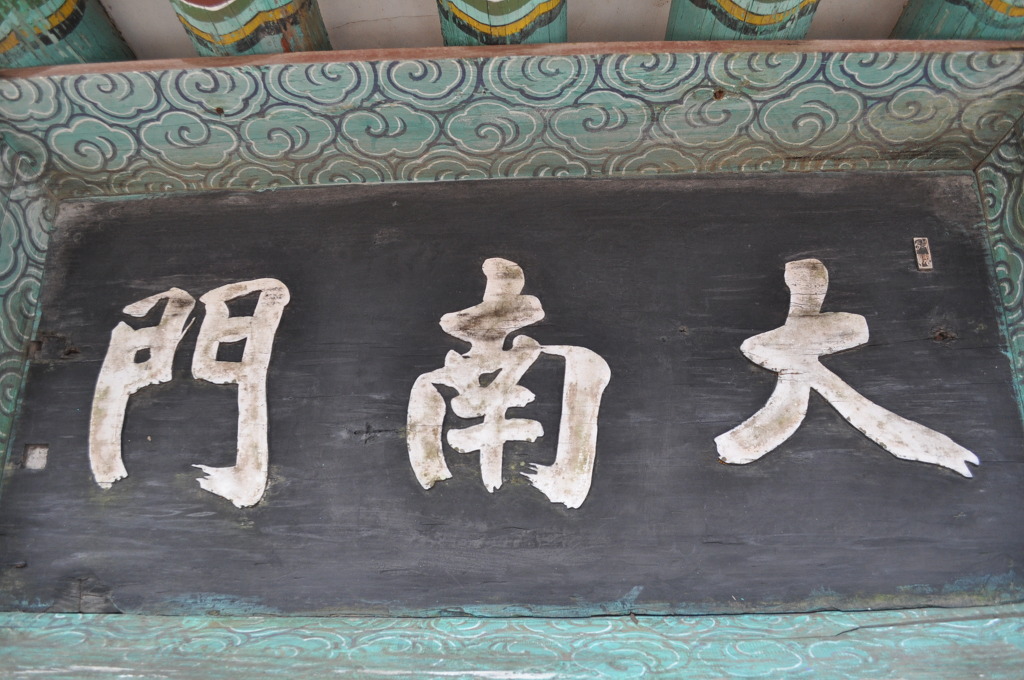 大南門